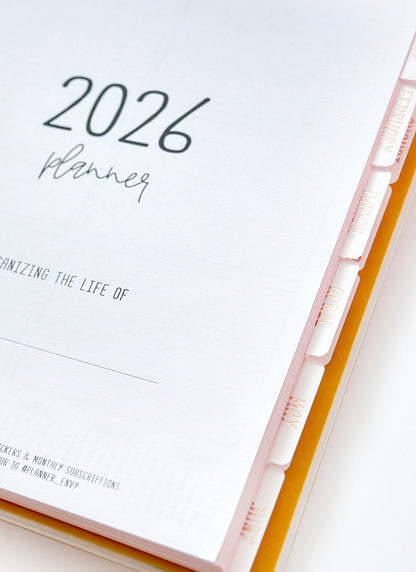 2026
planner
GANIZING THE LIFE OF
CKERS & MONTHLY SUBSCRIPTIONS
UR IG @PLANNER_ENVY
FEBRUARY
AUGUST
MARCH
APRIL
MAY
JUNE